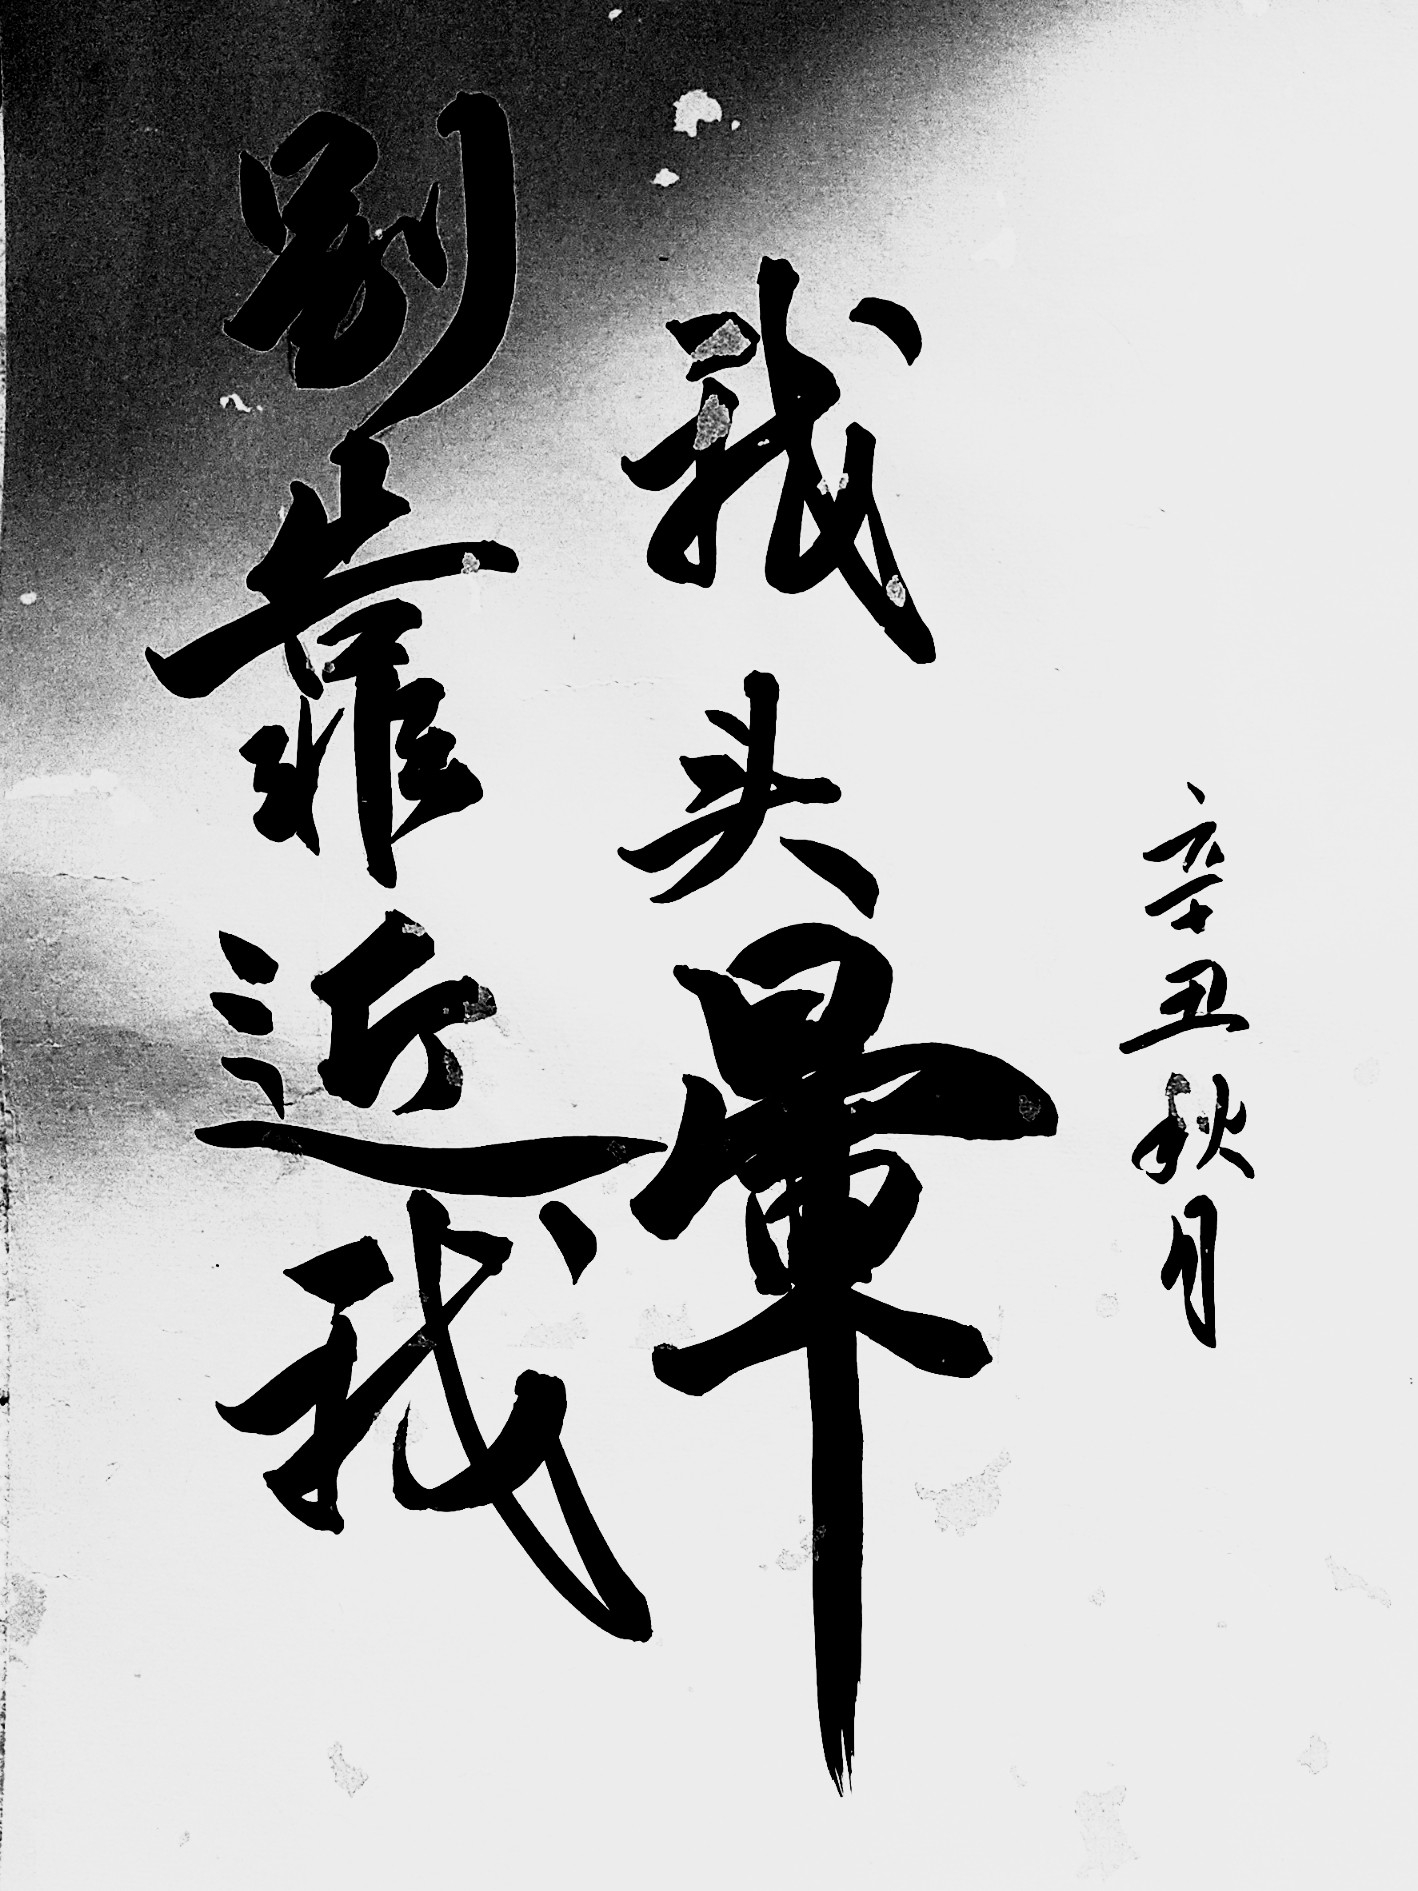 辛丑秋月
我头暈
别靠近我